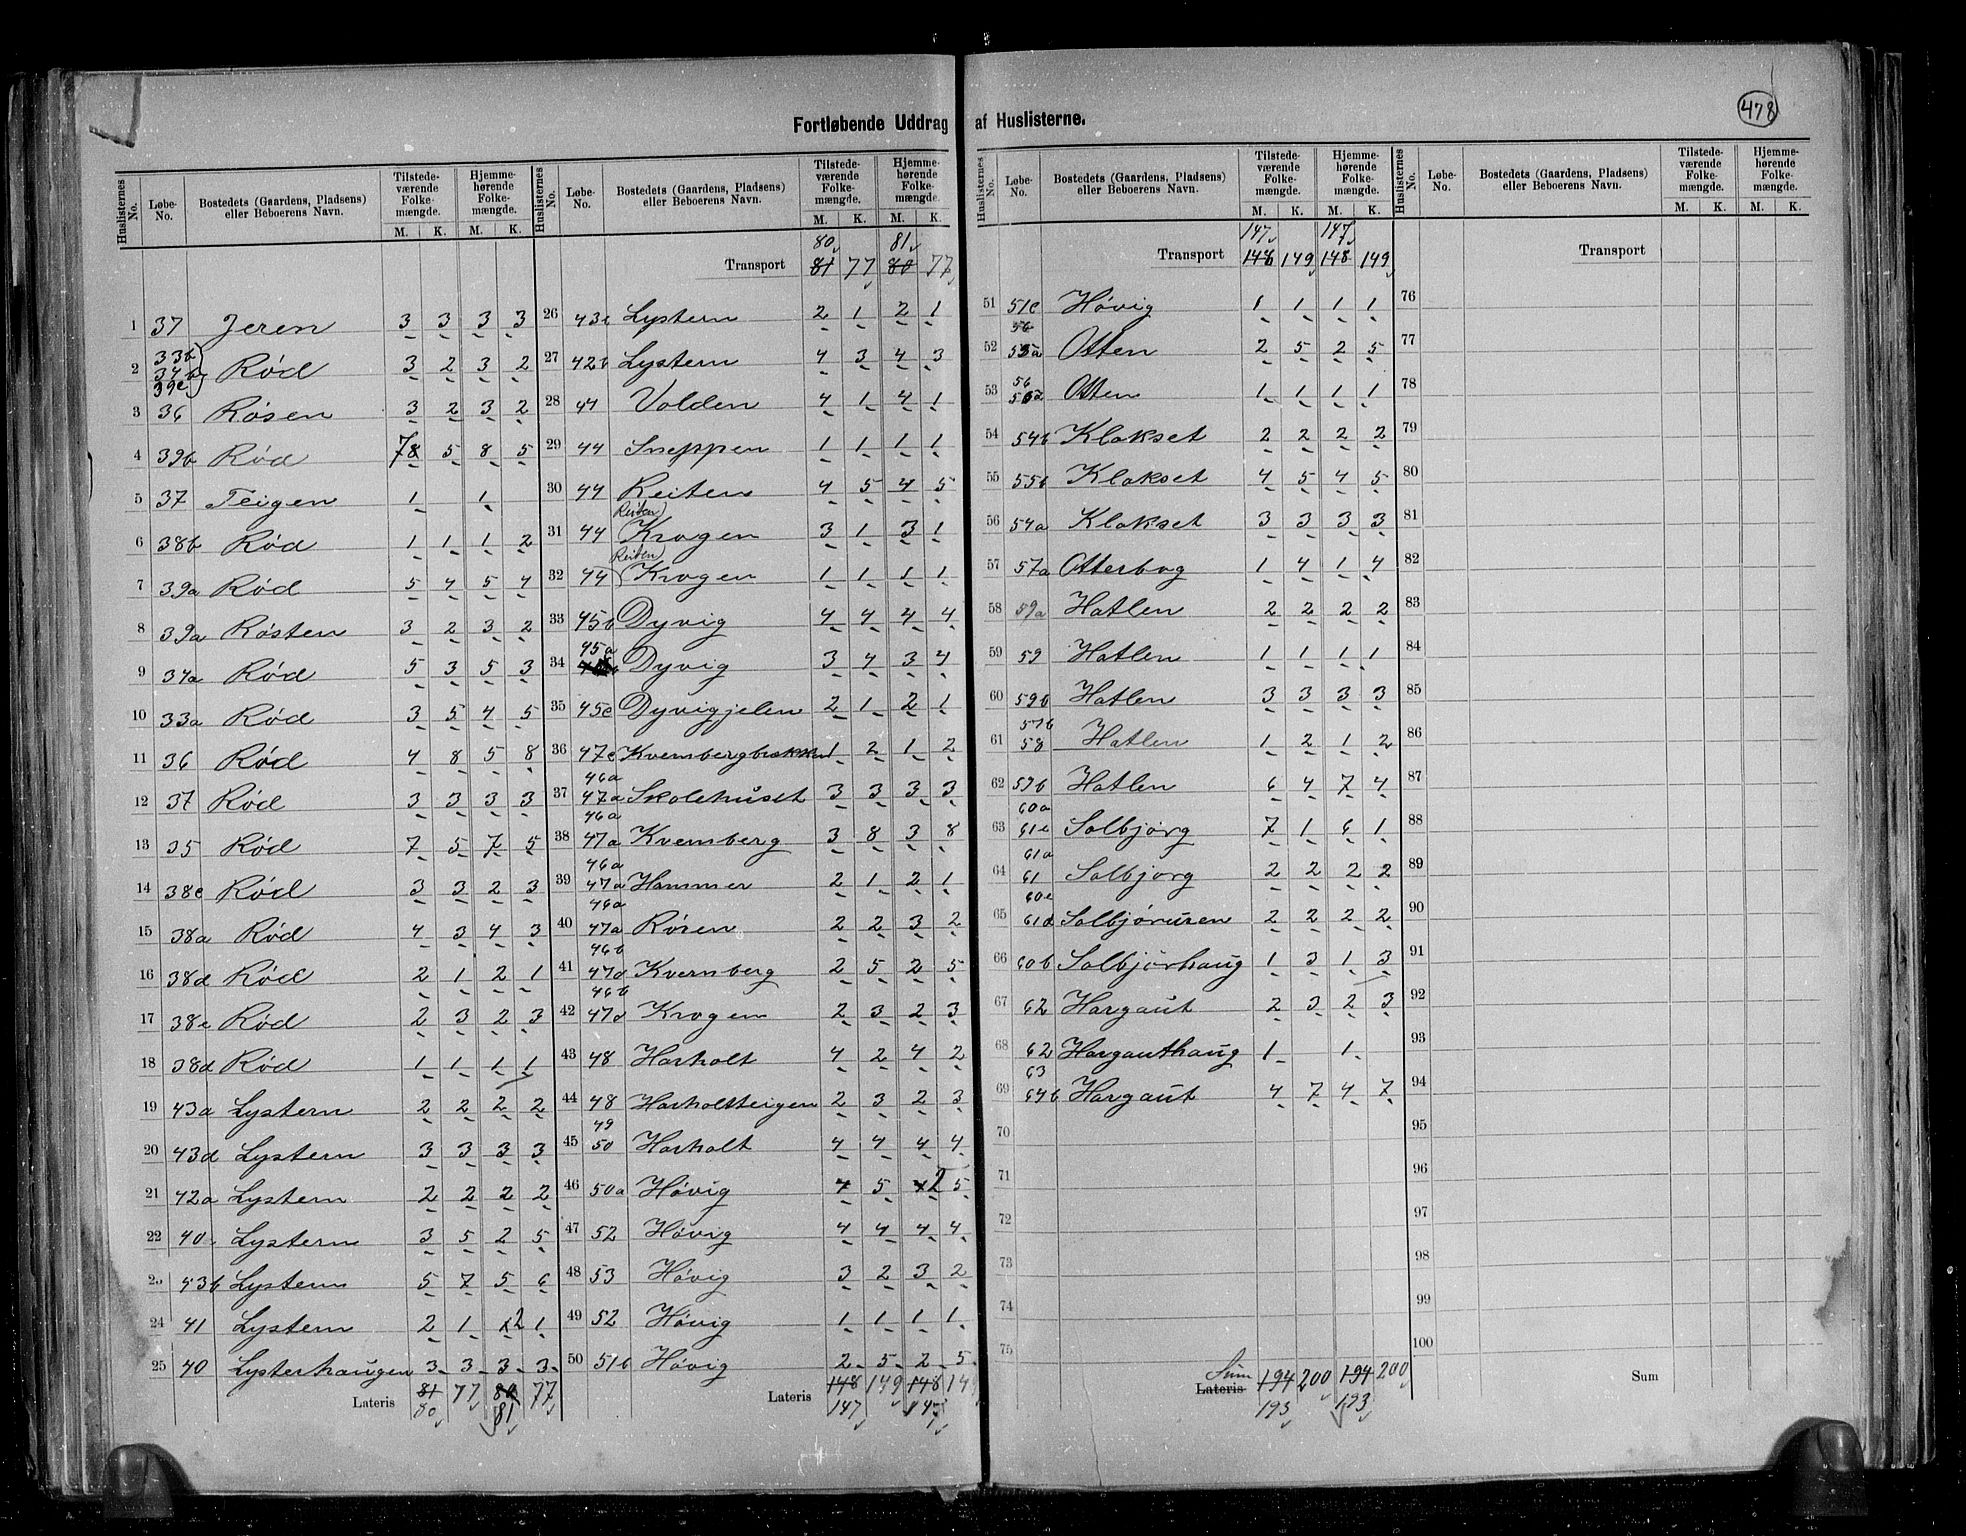 478
Fortløbende Uddrag af Huslisterne.
Huslisternes No. Løbe-No. Bostedets (Gaardens, Pladsens) eller Beboerens Navn. Tilstedeværende Folkemængde. Hjemmehørende Folkemængde.
M. K. M. K.
1 37 Jeren 3 3 3 3
2 33b 34b 39c Rød 3 2 3 2
3 36 Røsen 3 2 3 2
4 39b Rød 78 5 8 5
5 37 Teigen 1 1
6 38b Rød 1 1 1 2
7 39a Rød 5 4 5 4
8 39a Røsten 3 2 3 2
9 34a Rød 5 3 5 3
10 33a Rød 3 5 4 5
11 36 Rød 4 8 5 8
12 37 Rød 3 3 3 3
13 35 Rød 7 5 7 5
14 38c Rød 3 3 2 3
15 38a Rød 4 3 4 3
16 38d Rød 2 1 2 1
17 38c Rød 2 3 2 3
18 38d Rød 1 1 1 1
19 43a Lystern 2 2 2 2
20 43d Lystern 3 3 3 3
21 42a Lystern 2 2 2 2
22 40 Lystern 3 5 2 5
23 43b Lystern 5 7 5 6
24 41 Lystern 2 1 2 1
25 40 Lysterhaugen 3 3 3 3
Lateris 81 77 80 77
80 81
Huslisternes No. Løbe-No. Bostedets (Gaardens, Pladsens) eller Beboerens Navn. Tilstedeværende Folkemængde. Hjemmehørende Folkemængde.
M. K. M. K.
80 81
Transport 81 77 80 77
26 43c Lystern 2 1 2 1
27 42b Lystern 4 3 4 3
28 44 Volden 4 1 4 1
29 44 Sneppen 1 1 1 1
30 44 Reiten 4 5 4 5
Reiten)
31 44 Krogen 3 1 3 1
Reiten)
32 44 Krogen 1 1 1 1
33 45b Dyvig 4 4 4 4
45a
34 Dyvig 3 4 3 4
35 45c Dyvigjelen 2 1 2 1
36 47c Kvernbergbækken 1 2 1 2
46a
37 47a Skolehuset 3 3 3 3
46a
38 47a Kvernberg 3 8 3 8
46a
39 47a Hammer 2 1 2 1
46a
40 47a Rösen 2 2 3 2
46b
41 47d Kvernberg 2 5 2 5
46b
42 47d Krogen 2 3 2 3
43 48 Harholt 4 2 4 2
44 48 Harholtteigen 2 3 2 3
49
45 50 Harholt 4 4 4 4
46 50a Høvig 4 5 42 5
47 52 Høvig 4 4 4 4
48 53 Høvig 3 2 3 2
49 52 Høvig 1 1 1 1
50 51b Høvig 2 5 2 5
Lateris 148 149 148 149
147 145
Huslisternes No. Løbe-No. Bostedets (Gaardens, Pladsens) eller Beboerens Navn. Tilstedeværende Folkemængde. Hjemmehørende Folkemængde.
M. K. M. K.
147 147
Transport 148 149 148 149
51 51c Høvig 1 1 1 1
56
52 55a Otten 2 5 2 5
56
53 Otten 1 1 1 1
54 54b Klakset 2 2 2 2
55 55b Klakset 4 5 4 5
56 54a Klakset 3 3 3 3
57 57a Otterbog 1 4 1 4
58 59a Hatlen 2 2 2 2
59 59 Hatlen 1 1 1 1
60 59b Hatlen 3 3 3 3
57b
61 58 Hatlen 1 2 1 2
62 57b Hatlen 6 4 7 4
60a
63 61c Solbjørg 7 1 6 1
61a
64 61 Solbjørg 2 2 2 2
60c
65 61d Solbjøruren 2 2 2 2
66 60b Solbjørhaug 1 3 1 3
67 62 Hargaut 2 3 2 3
68 62 Hargauthaug 1 1
63
69 64b Hargaut 4 7 4 7
70
71
72
73
74
75
Sum
Lateris 194 200 194 200
193 193
Huslisternes No. Løbe-No. Bostedets (Gaardens, Pladsens) eller Beboerens Navn. Tilstedeværende Folkemængde. Hjemmehørende Folkemængde.
M. K. M. K.
Transport
76
77
78
79
80
81
82
83
84
85
86
87
88
89
90
91
92
93
94
95
96
97
98
99
100
Sum